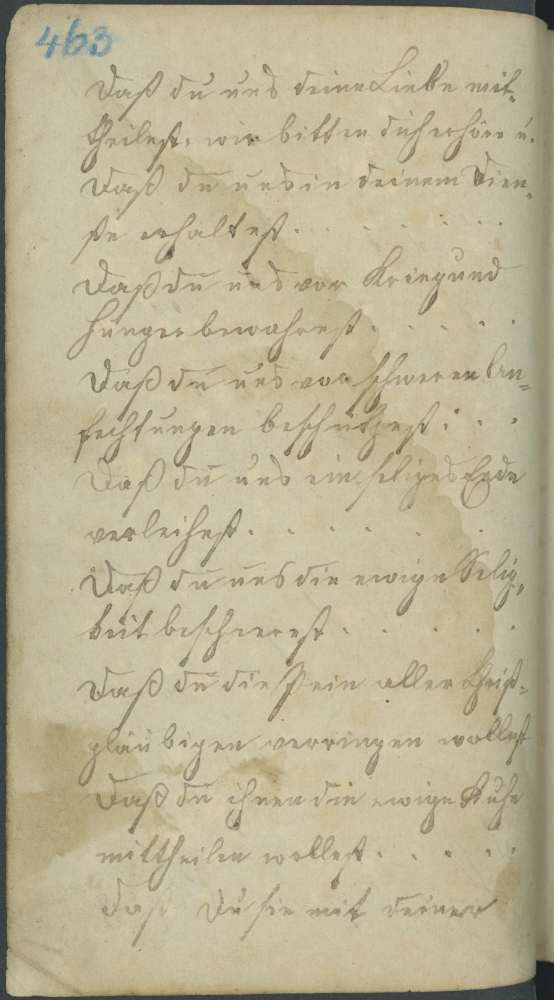 463
Daß du uns deine Liebe mit-
theilest, wir bitten dich erhöre u.
Daß du uns in deinem Dien-
ste erhaltest . . . . . .
Daß du uns vor Krieg und
Hunger bewahrest . . . . .
Daß du uns vor schweren An-
fechtungen beschützest . . .
Daß du uns ein seliges Ende
verleihest . . . . . .
Daß du uns die ewige Selig-
keit bescherest . . . . .
Daß du die Pein aller Christ-
gläubigen verringen wollest
Daß du ihnen die ewige Ruhe
mittheilen wollest . . . . .
Daß Du sie mit deiner